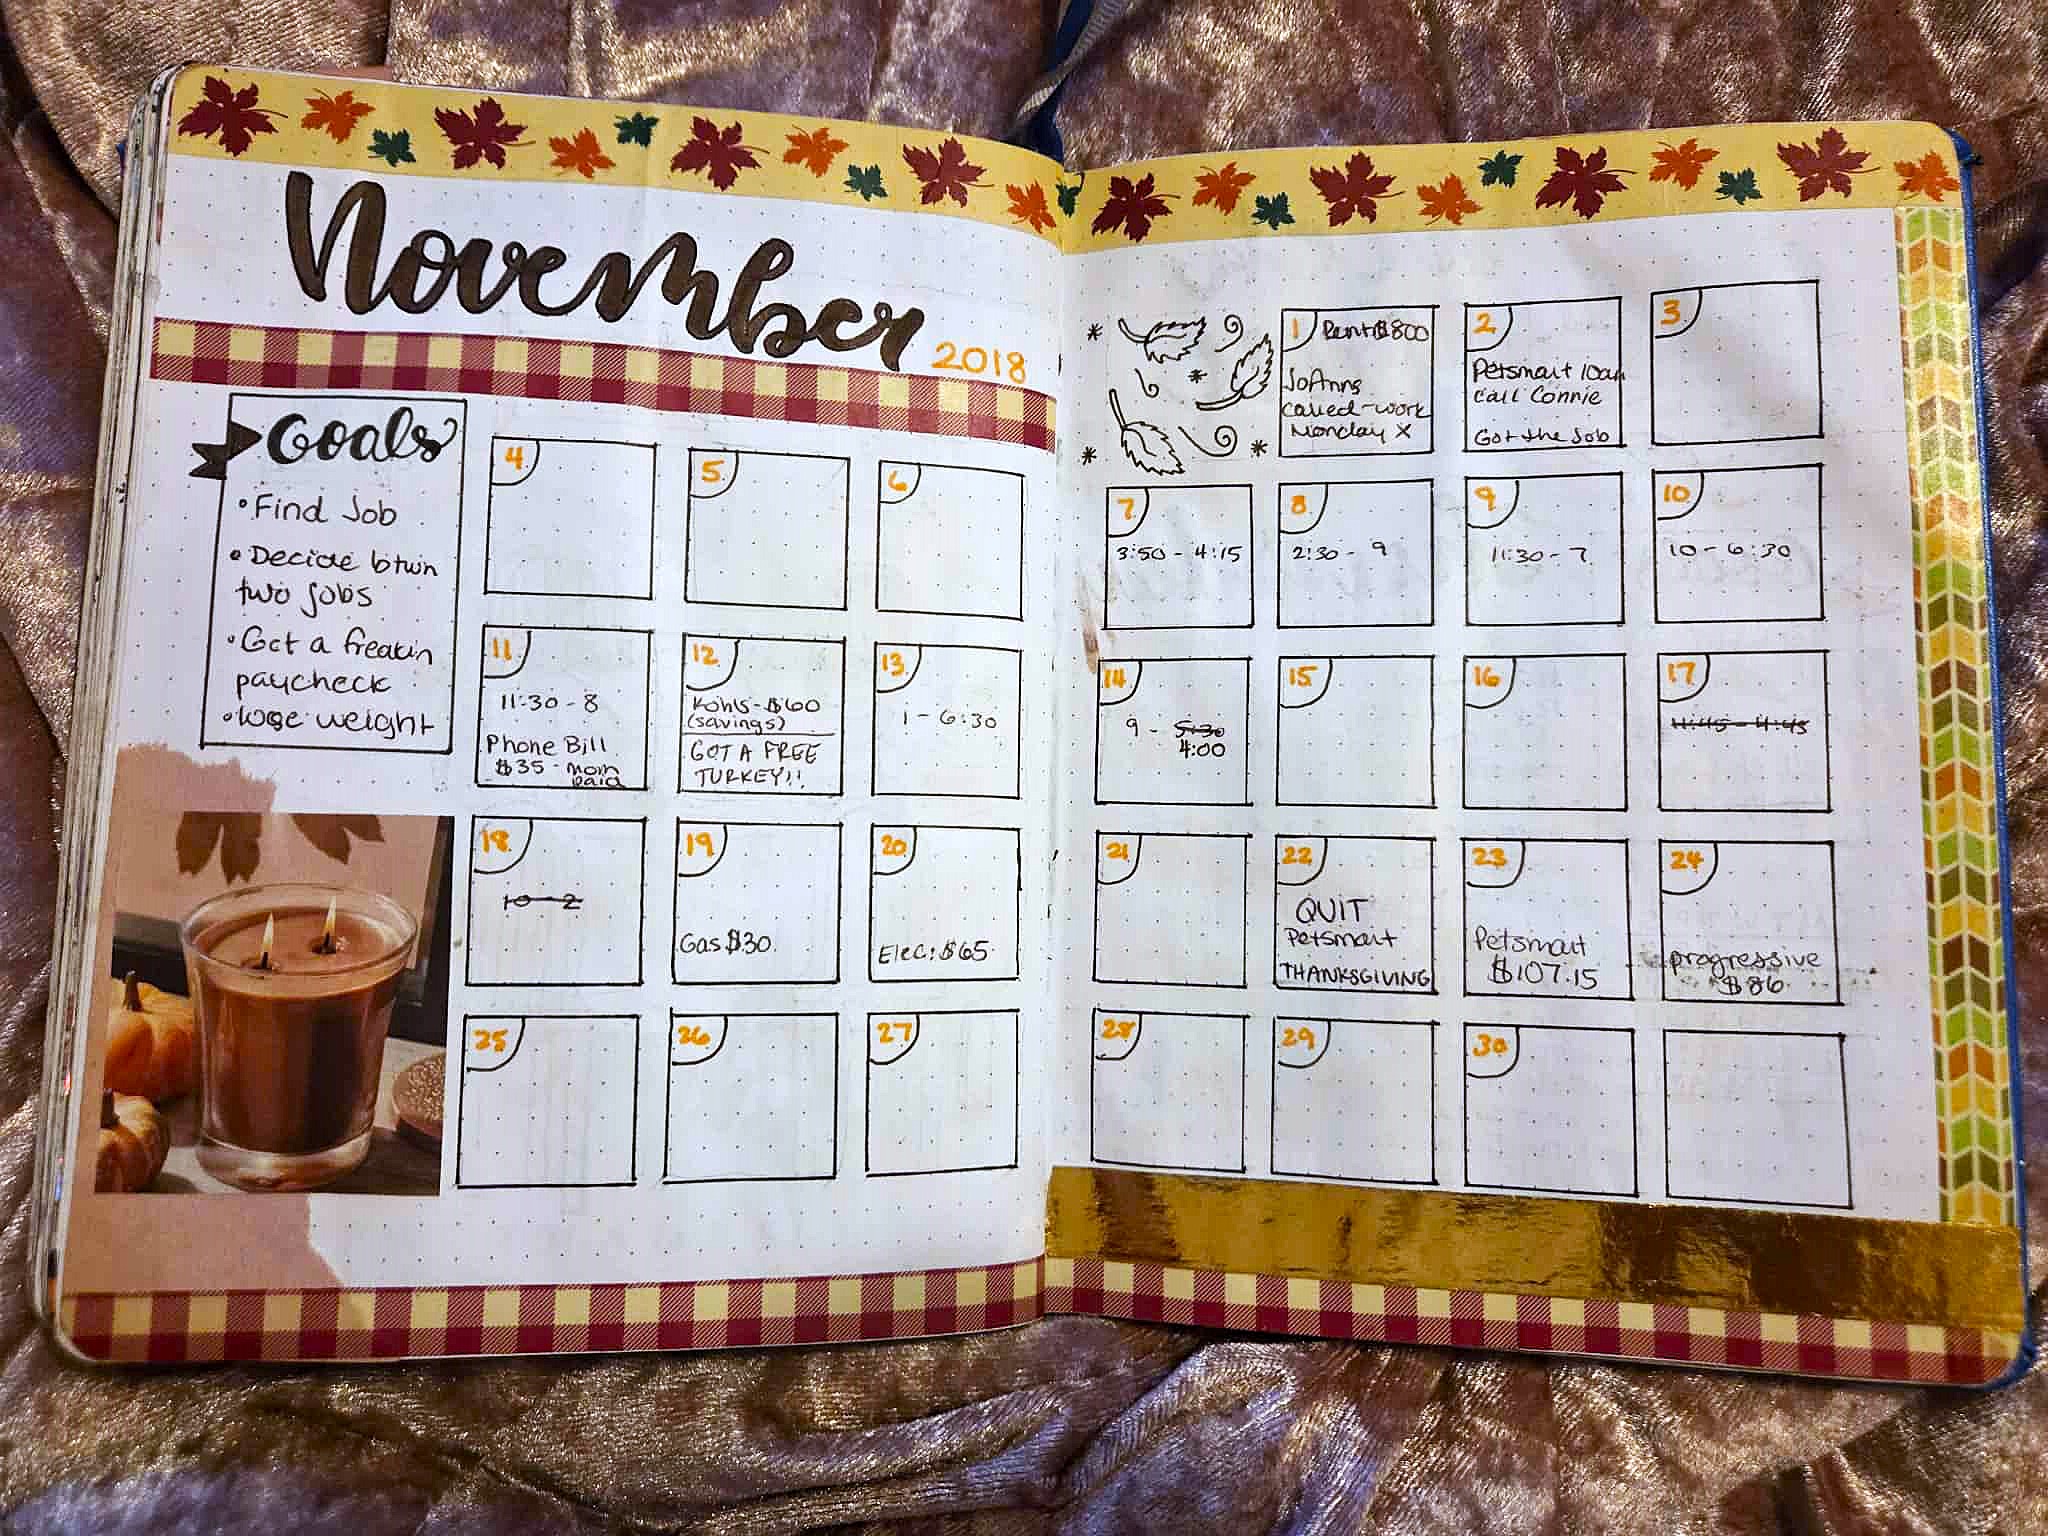 November
2018
Goals
•Find Job
•Decide btwn
two jobs
•Get a freakin
paycheck
•lose weight
1 Rent $800
JoAnns
called-work
Monday X
2
Petsmart 10am
call Connie
Got the Job
3
4
5
6
7
3:50 - 4:15
8
2:30 - 9
9
11:30 - 7
10
10 - 6:30
11
11:30 - 8
Phone Bill
$35 - mom
paid
12
Kohls - $60
(savings)
GOT A FREE
TURKEY!!
13
1 - 6:30
14
9 - 5:30
4:00
15
16
17
11:45 - 4:45
18
10 - 2
19
Gas $30
20
Elec: $65
21
22
QUIT
Petsmart
THANKSGIVING
23
Petsmart
$107.15
24
progressive
$86
25
26
27
28
29
30